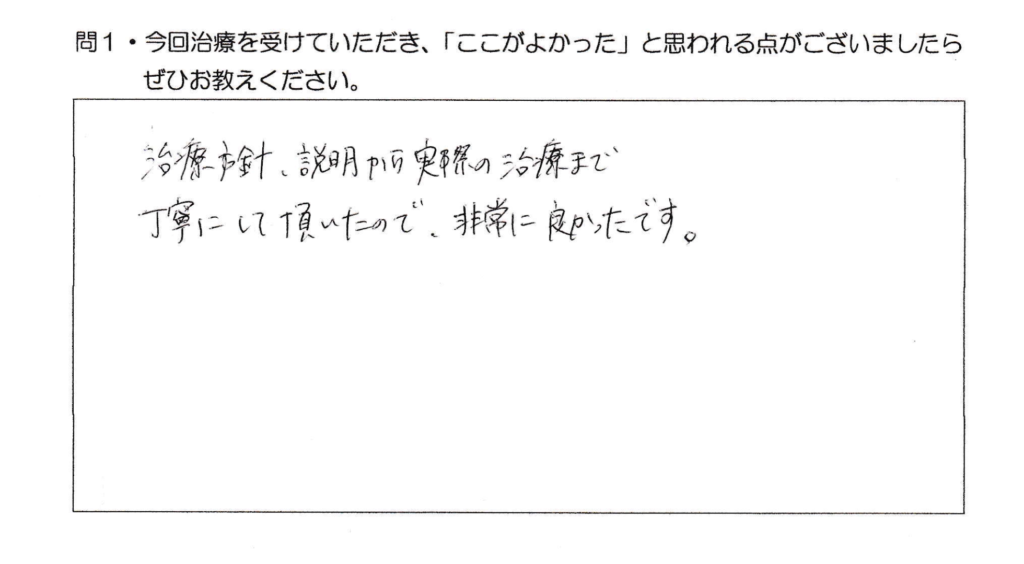 問1・今回治療を受けていただき、「ここがよかった」と思われる点がございましたら
ぜひお教えください。
治療方針、説明から実際の治療まで
丁寧にして頂いたので、非常に良かったです。